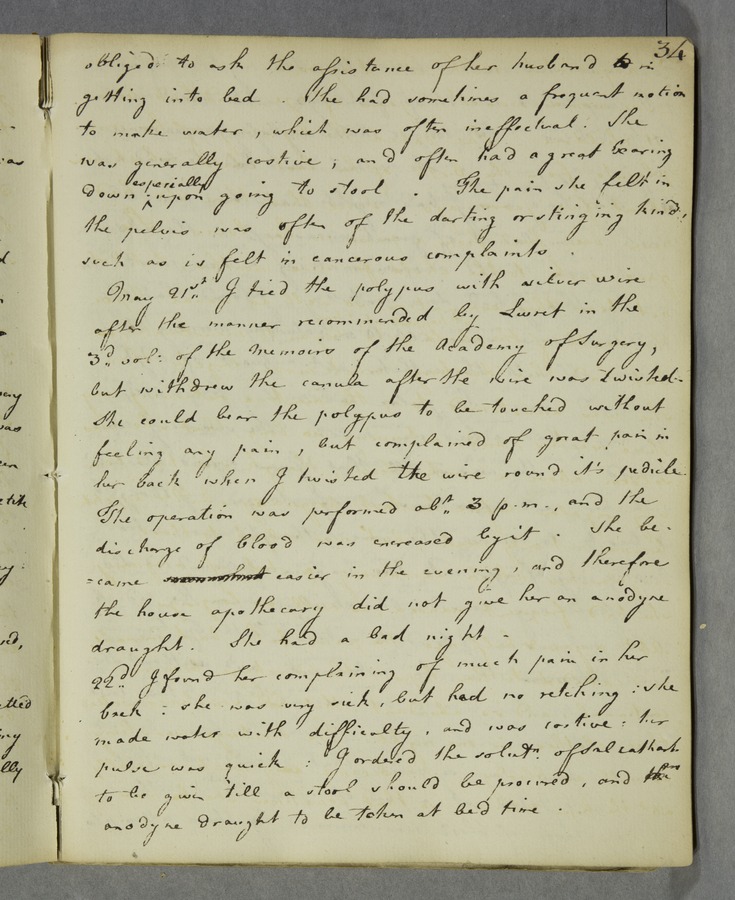 34
obliged to ask the assistance of her husband in
getting into bed . She had sometimes a frequent motion
to make water , which was often ineffectual . She
was generally costive ; and often had a great bearing
especially
down upon going to stool . The pain she felt in
the pelvis was often of the darting or stinging kind,
such as is felt in cancerous complaints .
May 21st I tied the polypus with silver wire
after the manner recommended by Levret in the
3d vol: of the Memoirs of the Academy of Surgery,
but withdrew the canula after the wire was twisted.
She could bear the polypus to be touched without
feeling any pain , but complained of great pain in
her back when I twisted the wire round it's pedicle.
The operation was performed abt 3 p.m., and the
discharge of blood was encreased by it . She be-
=came easier in the evening , and therefore
the house apothecary did not give her an anodyne
draught . She had a bad night -
22d I found her complaining of much pain in her
back : she was very sick , but had no retching : she
made water with difficulty , and was costive : her
pulse was quick : I ordered the solutn. of Sal cathart.
to be given till a stool should be procured , and
anodyne draught to be taken at bed time .